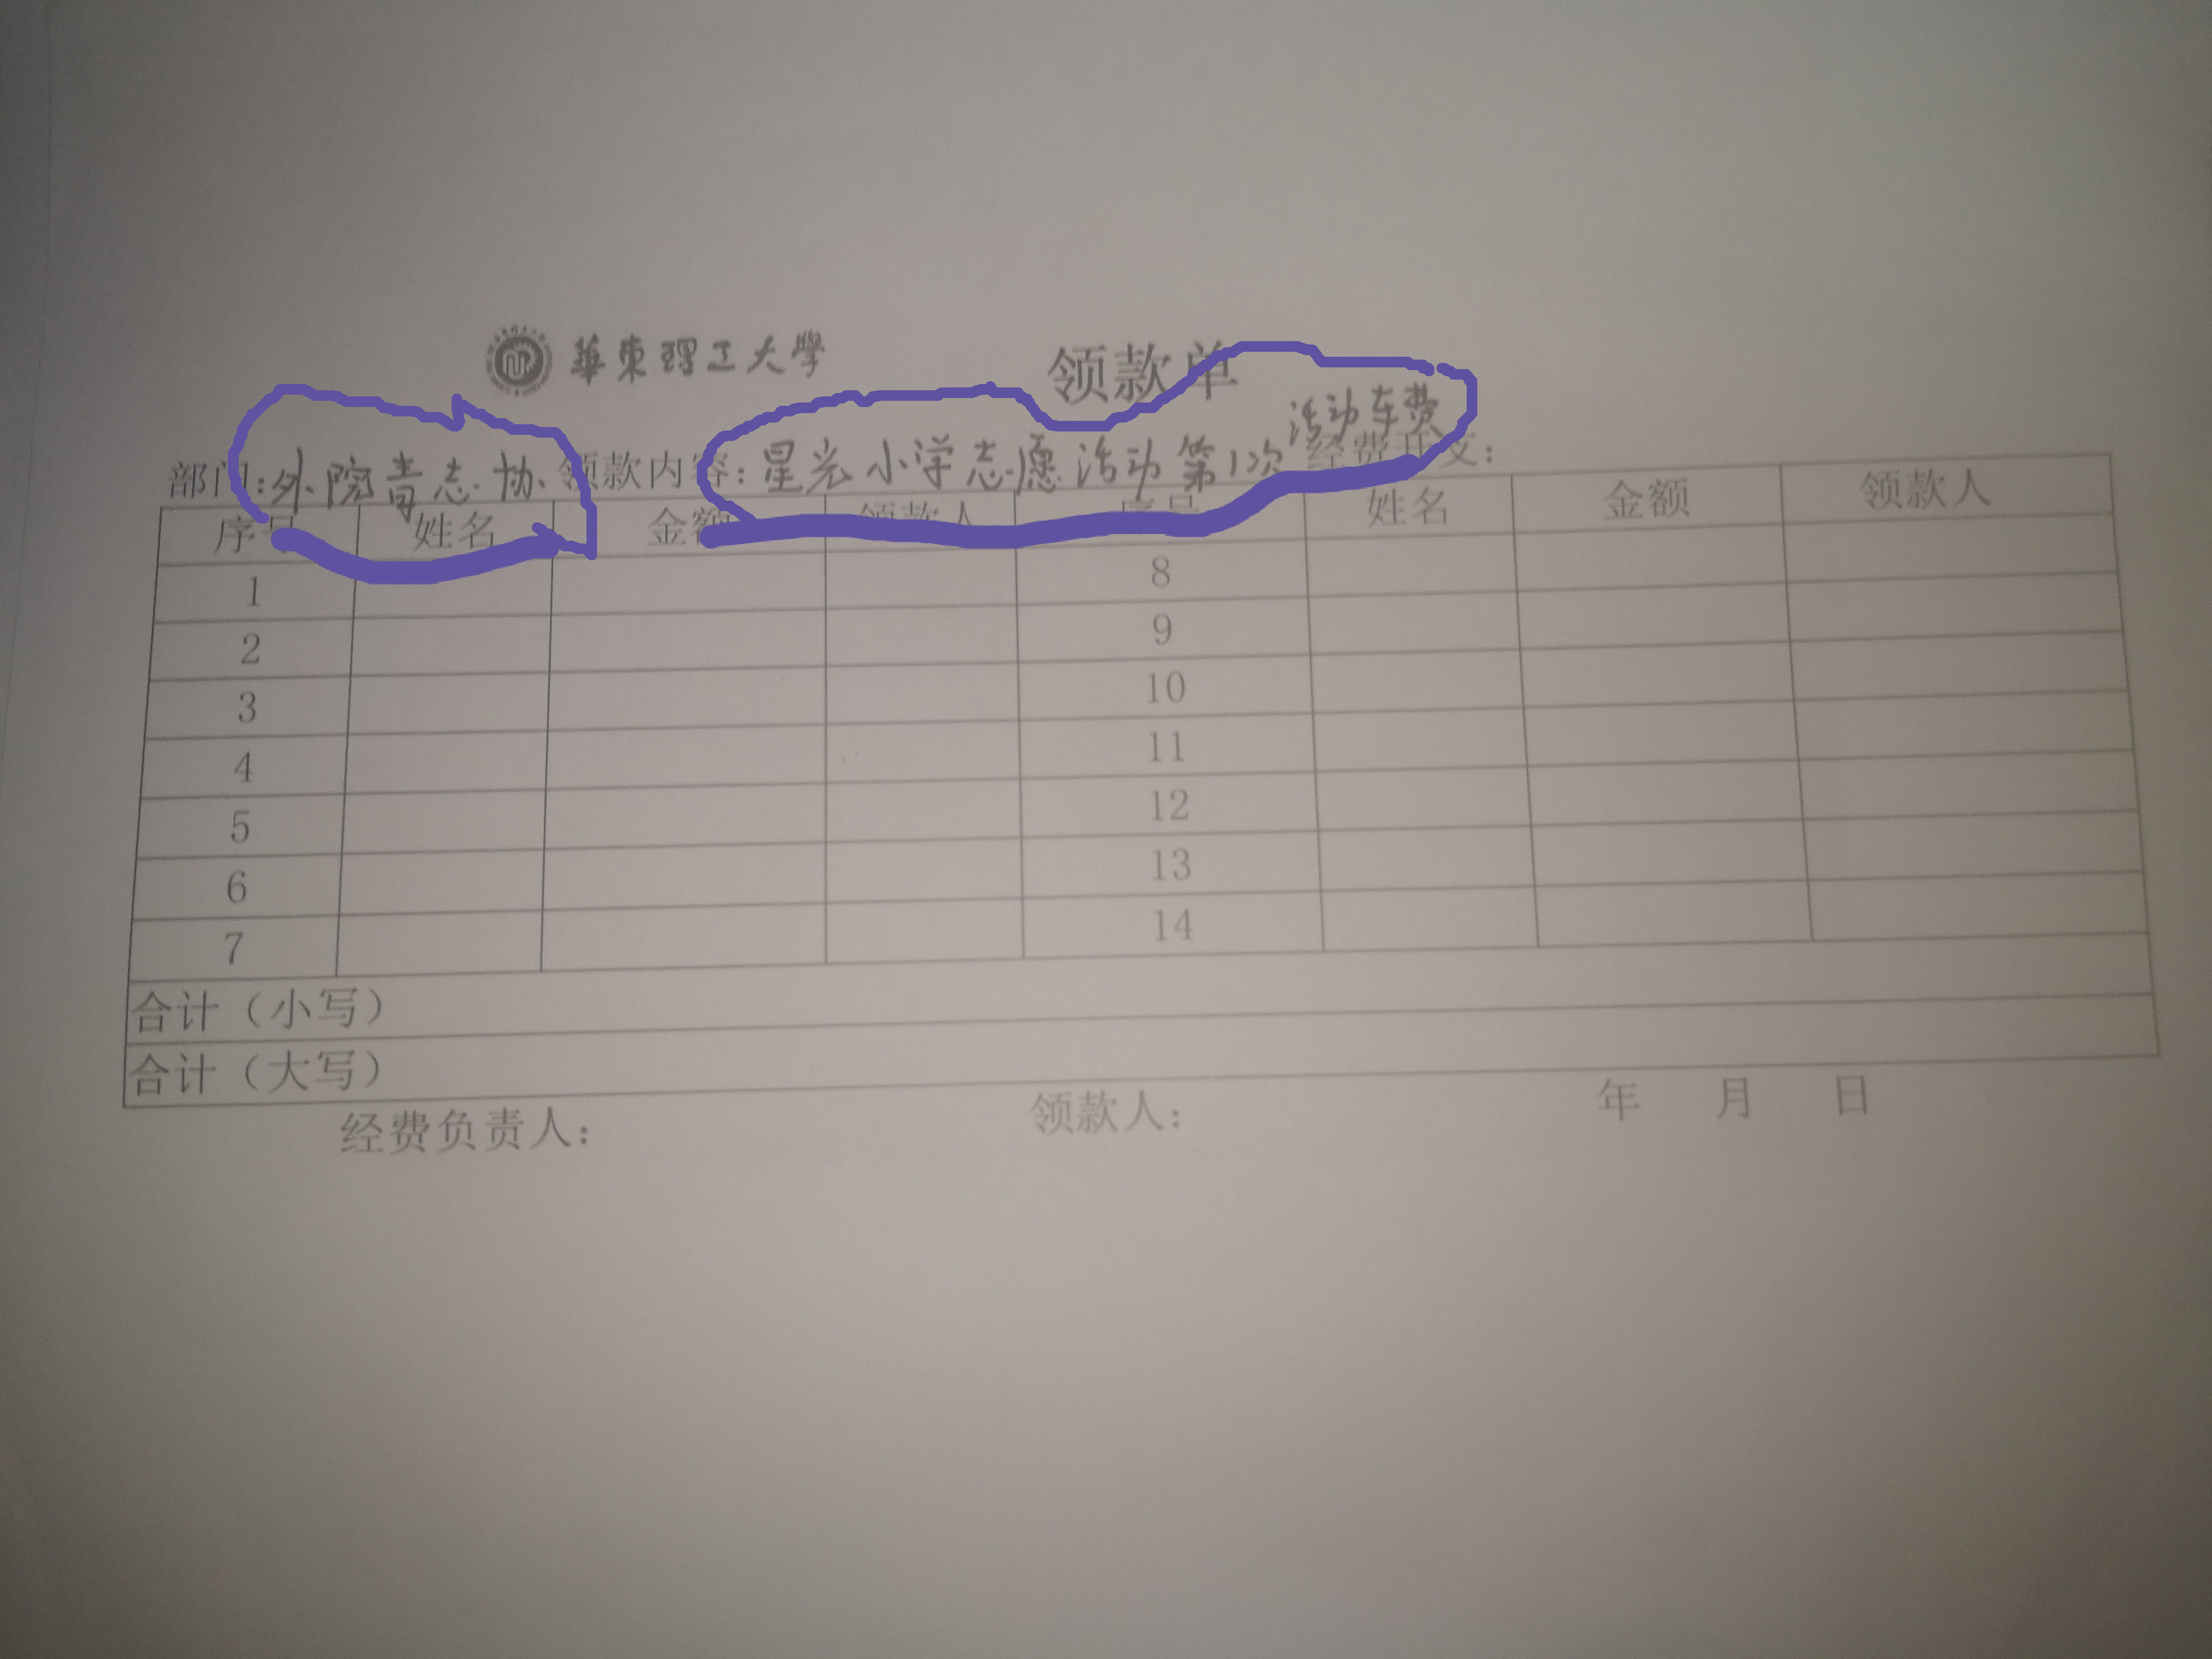 華東理工大學 领款单
部门:外院青志协 领款内容:星光小学志愿活动第1次活动车费 经费开支:
序号 姓名 金额 领款人 序号 姓名 金额 领款人
1 8
2 9
3 10
4 11
5 12
6 13
7 14
合计（小写）
合计（大写）
经费负责人: 领款人: 年 月 日